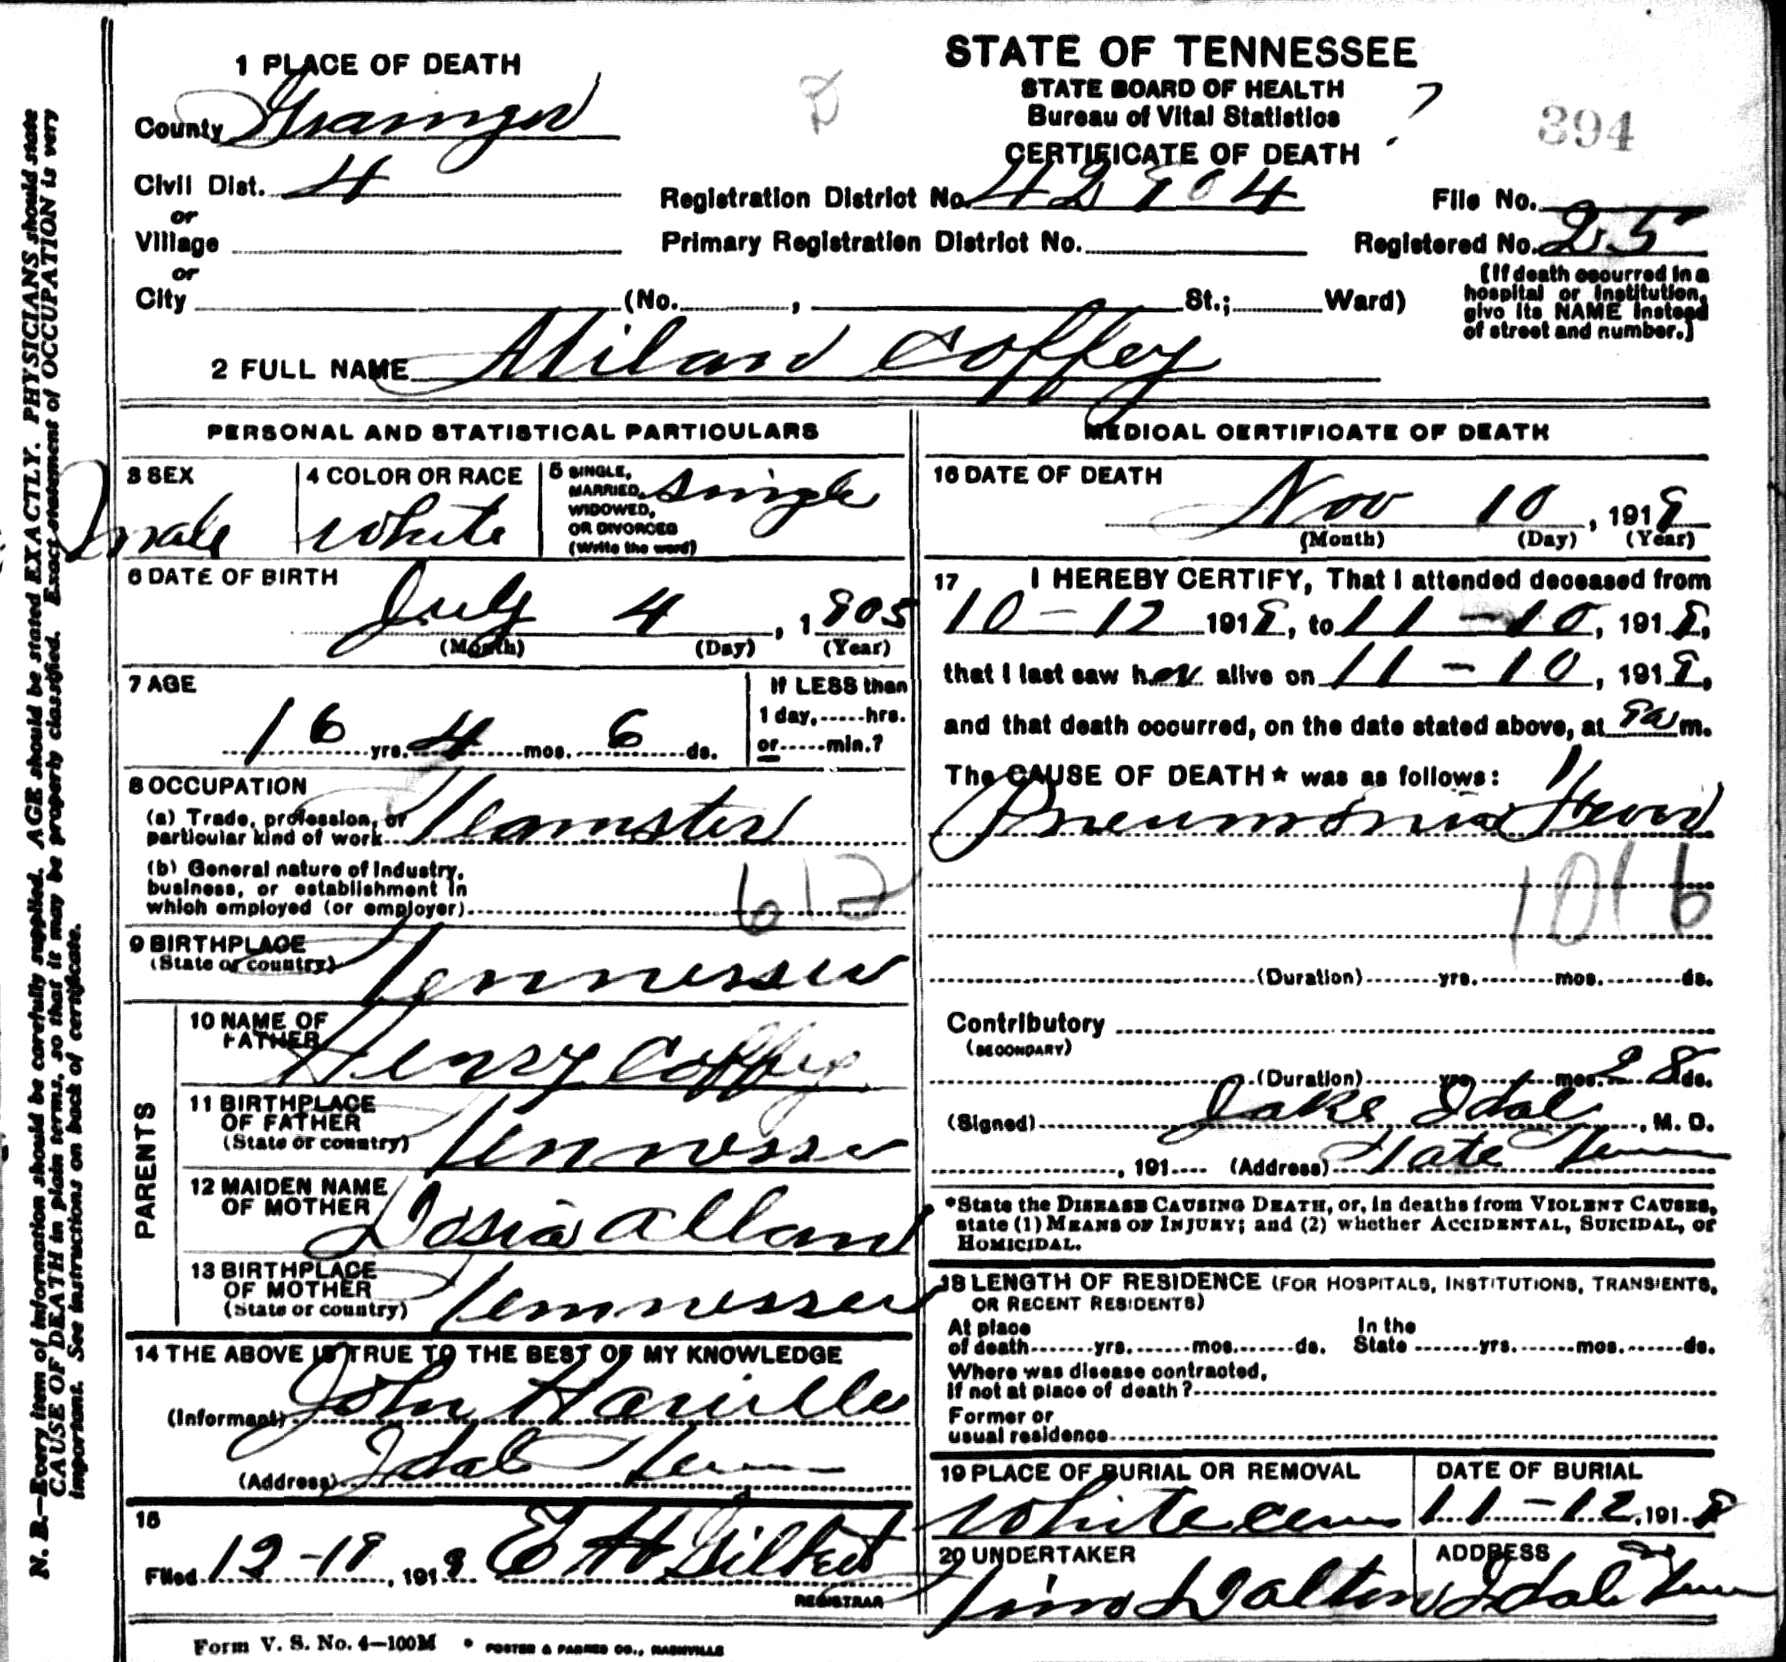 394
STATE OF TENNESSEE
STATE BOARD OF HEALTH
Bureau of Vital Statistics
CERTIFICATE OF DEATH
?
1 PLACE OF DEATH
County Grainger
Civil Dist. 4
or
Village
or
City (No. , St.; Ward)
Registration District No. 42904
File No.
Primary Registration District No.
Registered No. 25
[If death occurred in a
hospital or institution,
give its NAME instead
of street and number.]
2 FULL NAME Milard Coffey
PERSONAL AND STATISTICAL PARTICULARS
3 SEX
male
4 COLOR OR RACE
White
5 SINGLE,
MARRIED,
WIDOWED,
OR DIVORCED
(Write the word)
Single
6 DATE OF BIRTH
July 4, 1905
(Month) (Day) (Year)
7 AGE
16 yrs. 4 mos. 6 ds.
If LESS than
1 day, hrs.
or min.?
8 OCCUPATION
(a) Trade, profession, or
particular kind of work Teamster
(b) General nature of Industry,
business, or establishment in
which employed (or employer)
612
9 BIRTHPLACE
(State or country) Tennessee
PARENTS
10 NAME OF
FATHER Henry Coffey
11 BIRTHPLACE
OF FATHER
(State or country) Tennessee
12 MAIDEN NAME
OF MOTHER Dosia
13 BIRTHPLACE
OF MOTHER
(State or country) Tennessee
14 THE ABOVE IS TRUE TO THE BEST OF MY KNOWLEDGE
(Informant) John
(Address) Idol Tenn
15
Filed 12-19, 1918
REGISTRAR
MEDICAL CERTIFICATE OF DEATH
16 DATE OF DEATH
Nov 10, 1918
(Month) (Day) (Year)
17 I HEREBY CERTIFY, That I attended deceased from
10-12 1918, to 11-10, 1918,
that I last saw her alive on 11-10, 1918,
and that death occurred, on the date stated above, at m.
The CAUSE OF DEATH* was as follows:
Pneumonia Fever
101 b
(Duration) yrs. mos. ds.
Contributory
(SECONDARY)
(Duration) yrs. mos. 28 ds.
(Signed) Jake Idol, M. D.
, 191 (Address) Tate Tenn
*State the DISEASE CAUSING DEATH, or, in deaths from VIOLENT CAUSES,
state (1) MEANS OF INJURY; and (2) whether ACCIDENTAL, SUICIDAL, or
HOMICIDAL.
18 LENGTH OF RESIDENCE (FOR HOSPITALS, INSTITUTIONS, TRANSIENTS,
OR RECENT RESIDENTS)
At place
of death yrs. mos. ds.
In the
State yrs. mos. ds.
Where was disease contracted,
if not at place of death?
Former or
usual residence
19 PLACE OF BURIAL OR REMOVAL
White cem
DATE OF BURIAL
11-12, 1918
20 UNDERTAKER
Jim Dalton
ADDRESS
Idol Tenn
Form V. S. No. 4—100M • FOSTER & PARKES CO., NASHVILLE
N. B.—Every item of information should be carefully supplied. AGE should be stated EXACTLY. PHYSICIANS should state
CAUSE OF DEATH in plain terms, so that it may be properly classified. Exact statement of OCCUPATION is very
important. See instructions on back of certificate.